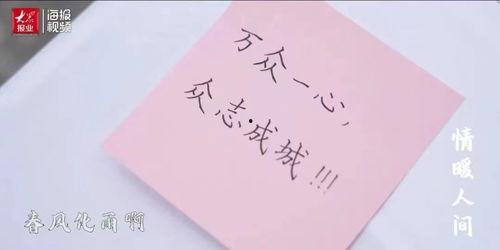 大众报业
海报视频
万众一心，
众志成城!!!
情暖人间
春风化雨啊